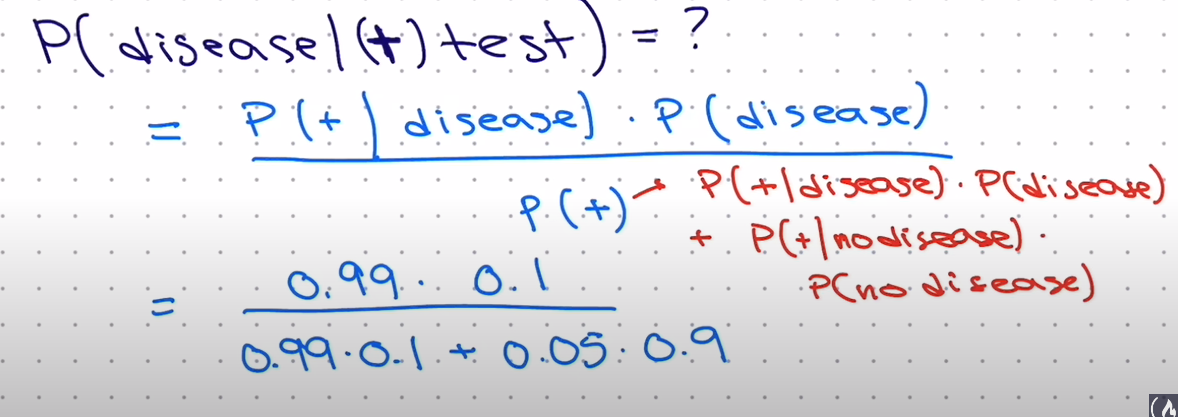 P(disease|(+)test) = ?
= P(+|disease) · P(disease)
P(+) → P(+|disease) · P(disease)
+ P(+|no disease) ·
P(no disease)
= 0.99 · 0.1
0.99 · 0.1 + 0.05 · 0.9